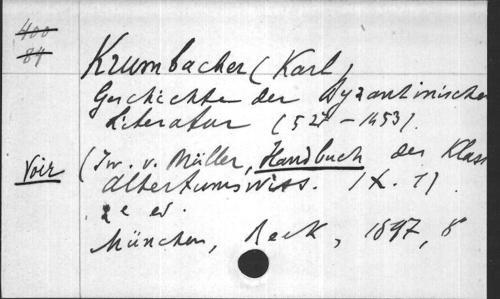 400
84
Krumbacher (Karl)
Geschichte der Byzantinische
Literatur (527-1453).
Voir (Iw. v. Müller, Handbuch der Klass
Altertumswiss. IX. 1)
2e ed.
München, Beck, 1897, 8°